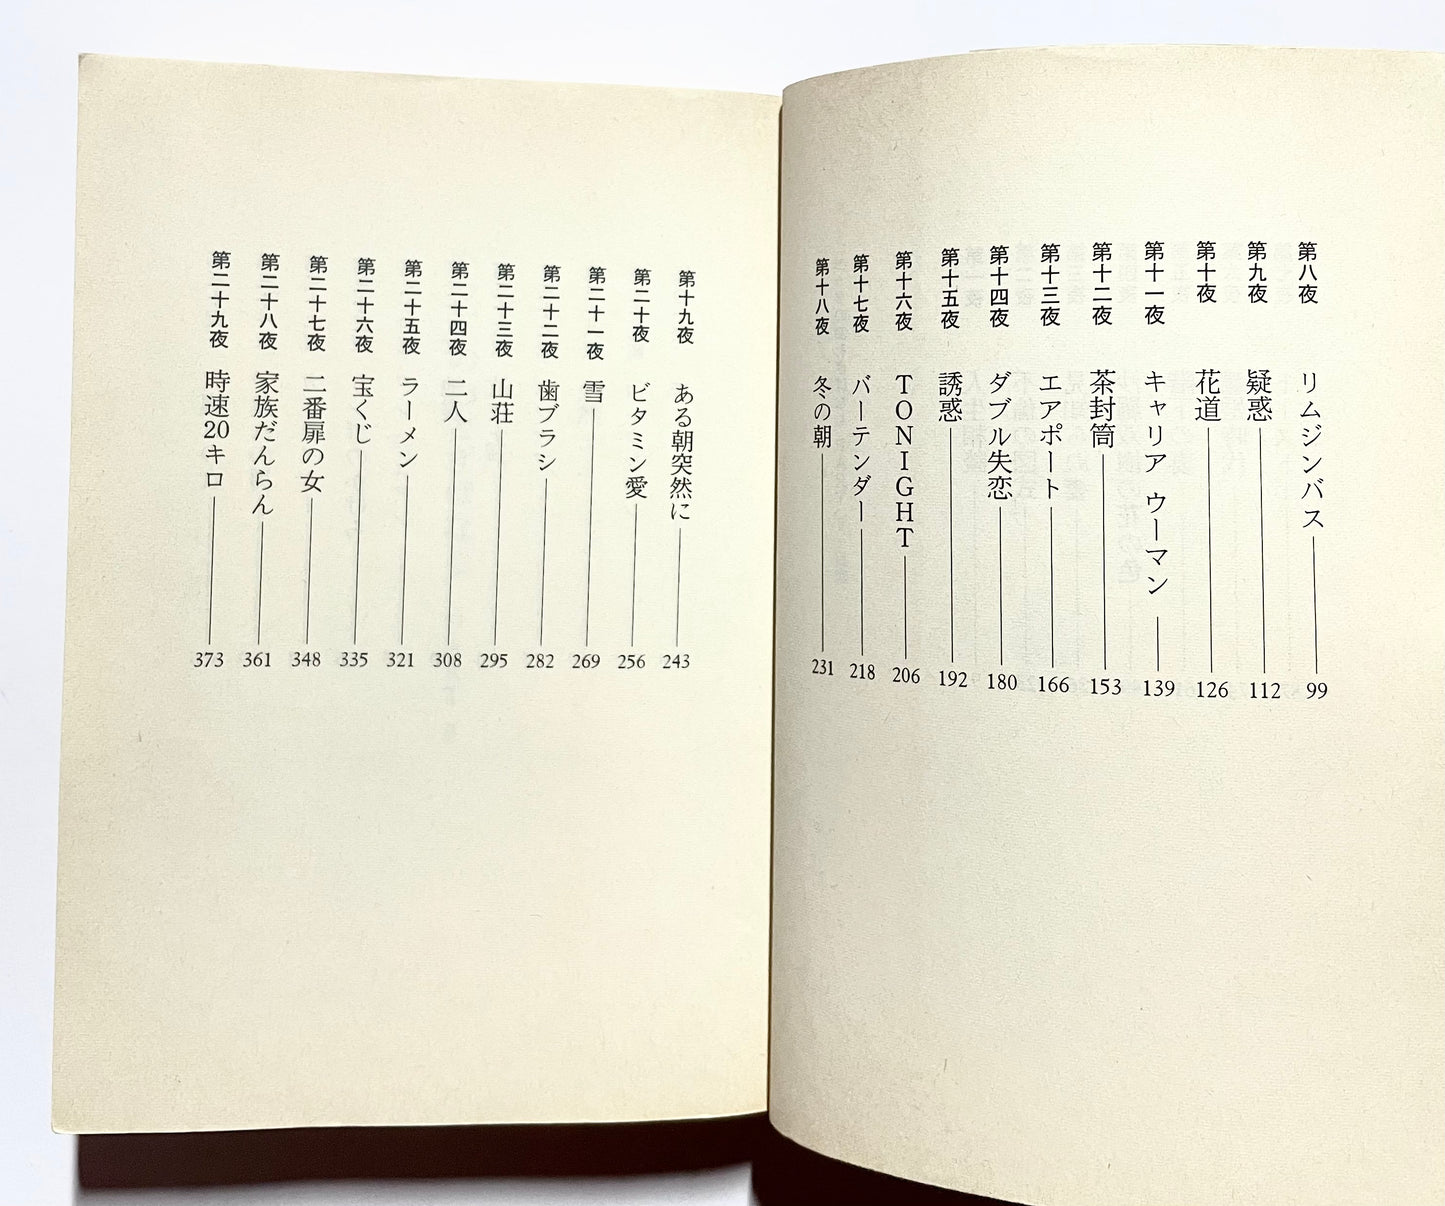 第八夜 リムジンバス 99
第九夜 疑惑 112
第十夜 花道 126
第十一夜 キャリア ウーマン 139
第十二夜 茶封筒 153
第十三夜 エアポート 166
第十四夜 ダブル失恋 180
第十五夜 誘惑 192
第十六夜 TONIGHT 206
第十七夜 バーテンダー 218
第十八夜 冬の朝 231
第十九夜 ある朝突然に 243
第二十夜 ビタミン愛 256
第二十一夜 雪 269
第二十二夜 歯ブラシ 282
第二十三夜 山荘 295
第二十四夜 二人 308
第二十五夜 ラーメン 321
第二十六夜 宝くじ 335
第二十七夜 二番扉の女 348
第二十八夜 家族だんらん 361
第二十九夜 時速20キロ 373